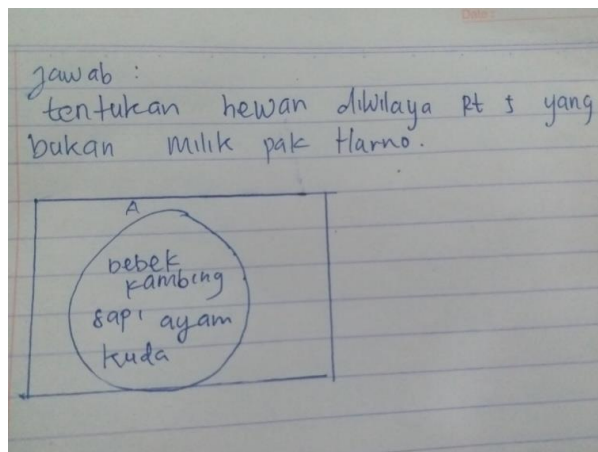 Date:
Jawab :
tentukan hewan diwilaya Rt 5 yang
bukan milik pak Harno.
A
bebek
kambing
sapi ayam
kuda